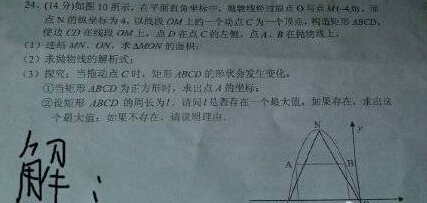 24、(14分)如图10所示，在平面直角坐标中，抛物线经过原点O与点M(-4,0)，顶
点N的纵坐标为4，以线段OM上的一个动点C为一个顶点，构造矩形ABCD，
使边CD在线段OM上，点D在点C的左侧，点A、B在抛物线上。
(1)连结MN、ON，求△MON的面积；
(2)求抛物线的解析式；
(3)探究：当拖动点C时，矩形ABCD的形状会发生变化，
①当矩形ABCD为正方形时，求出点A的坐标；
②设矩形ABCD的周长为l，请问l是否存在一个最大值，如果存在，求出这
个最大值；如果不存在，请说明理由。
N
y
A
B
解：